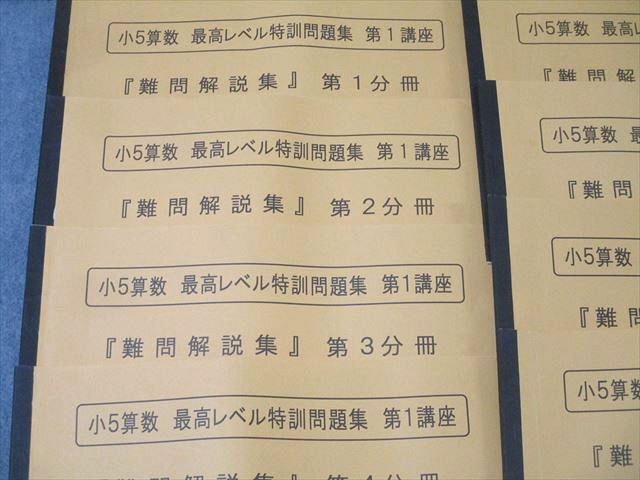 小5算数 最高レベル特訓問題集 第1講座
『難問解説集』 第1分冊
小5算数 最高レベル特訓問題集 第1講座
『難問解説集』 第2分冊
小5算数 最高レベル特訓問題集 第1講座
『難問解説集』 第3分冊
小5算数 最高レベル特訓問題集 第1講座
『難問解説集』 第4分冊
小5算数 最高レ
『難問解
小5算数 最
『難問
小5算数
『難問
小5算数
『難